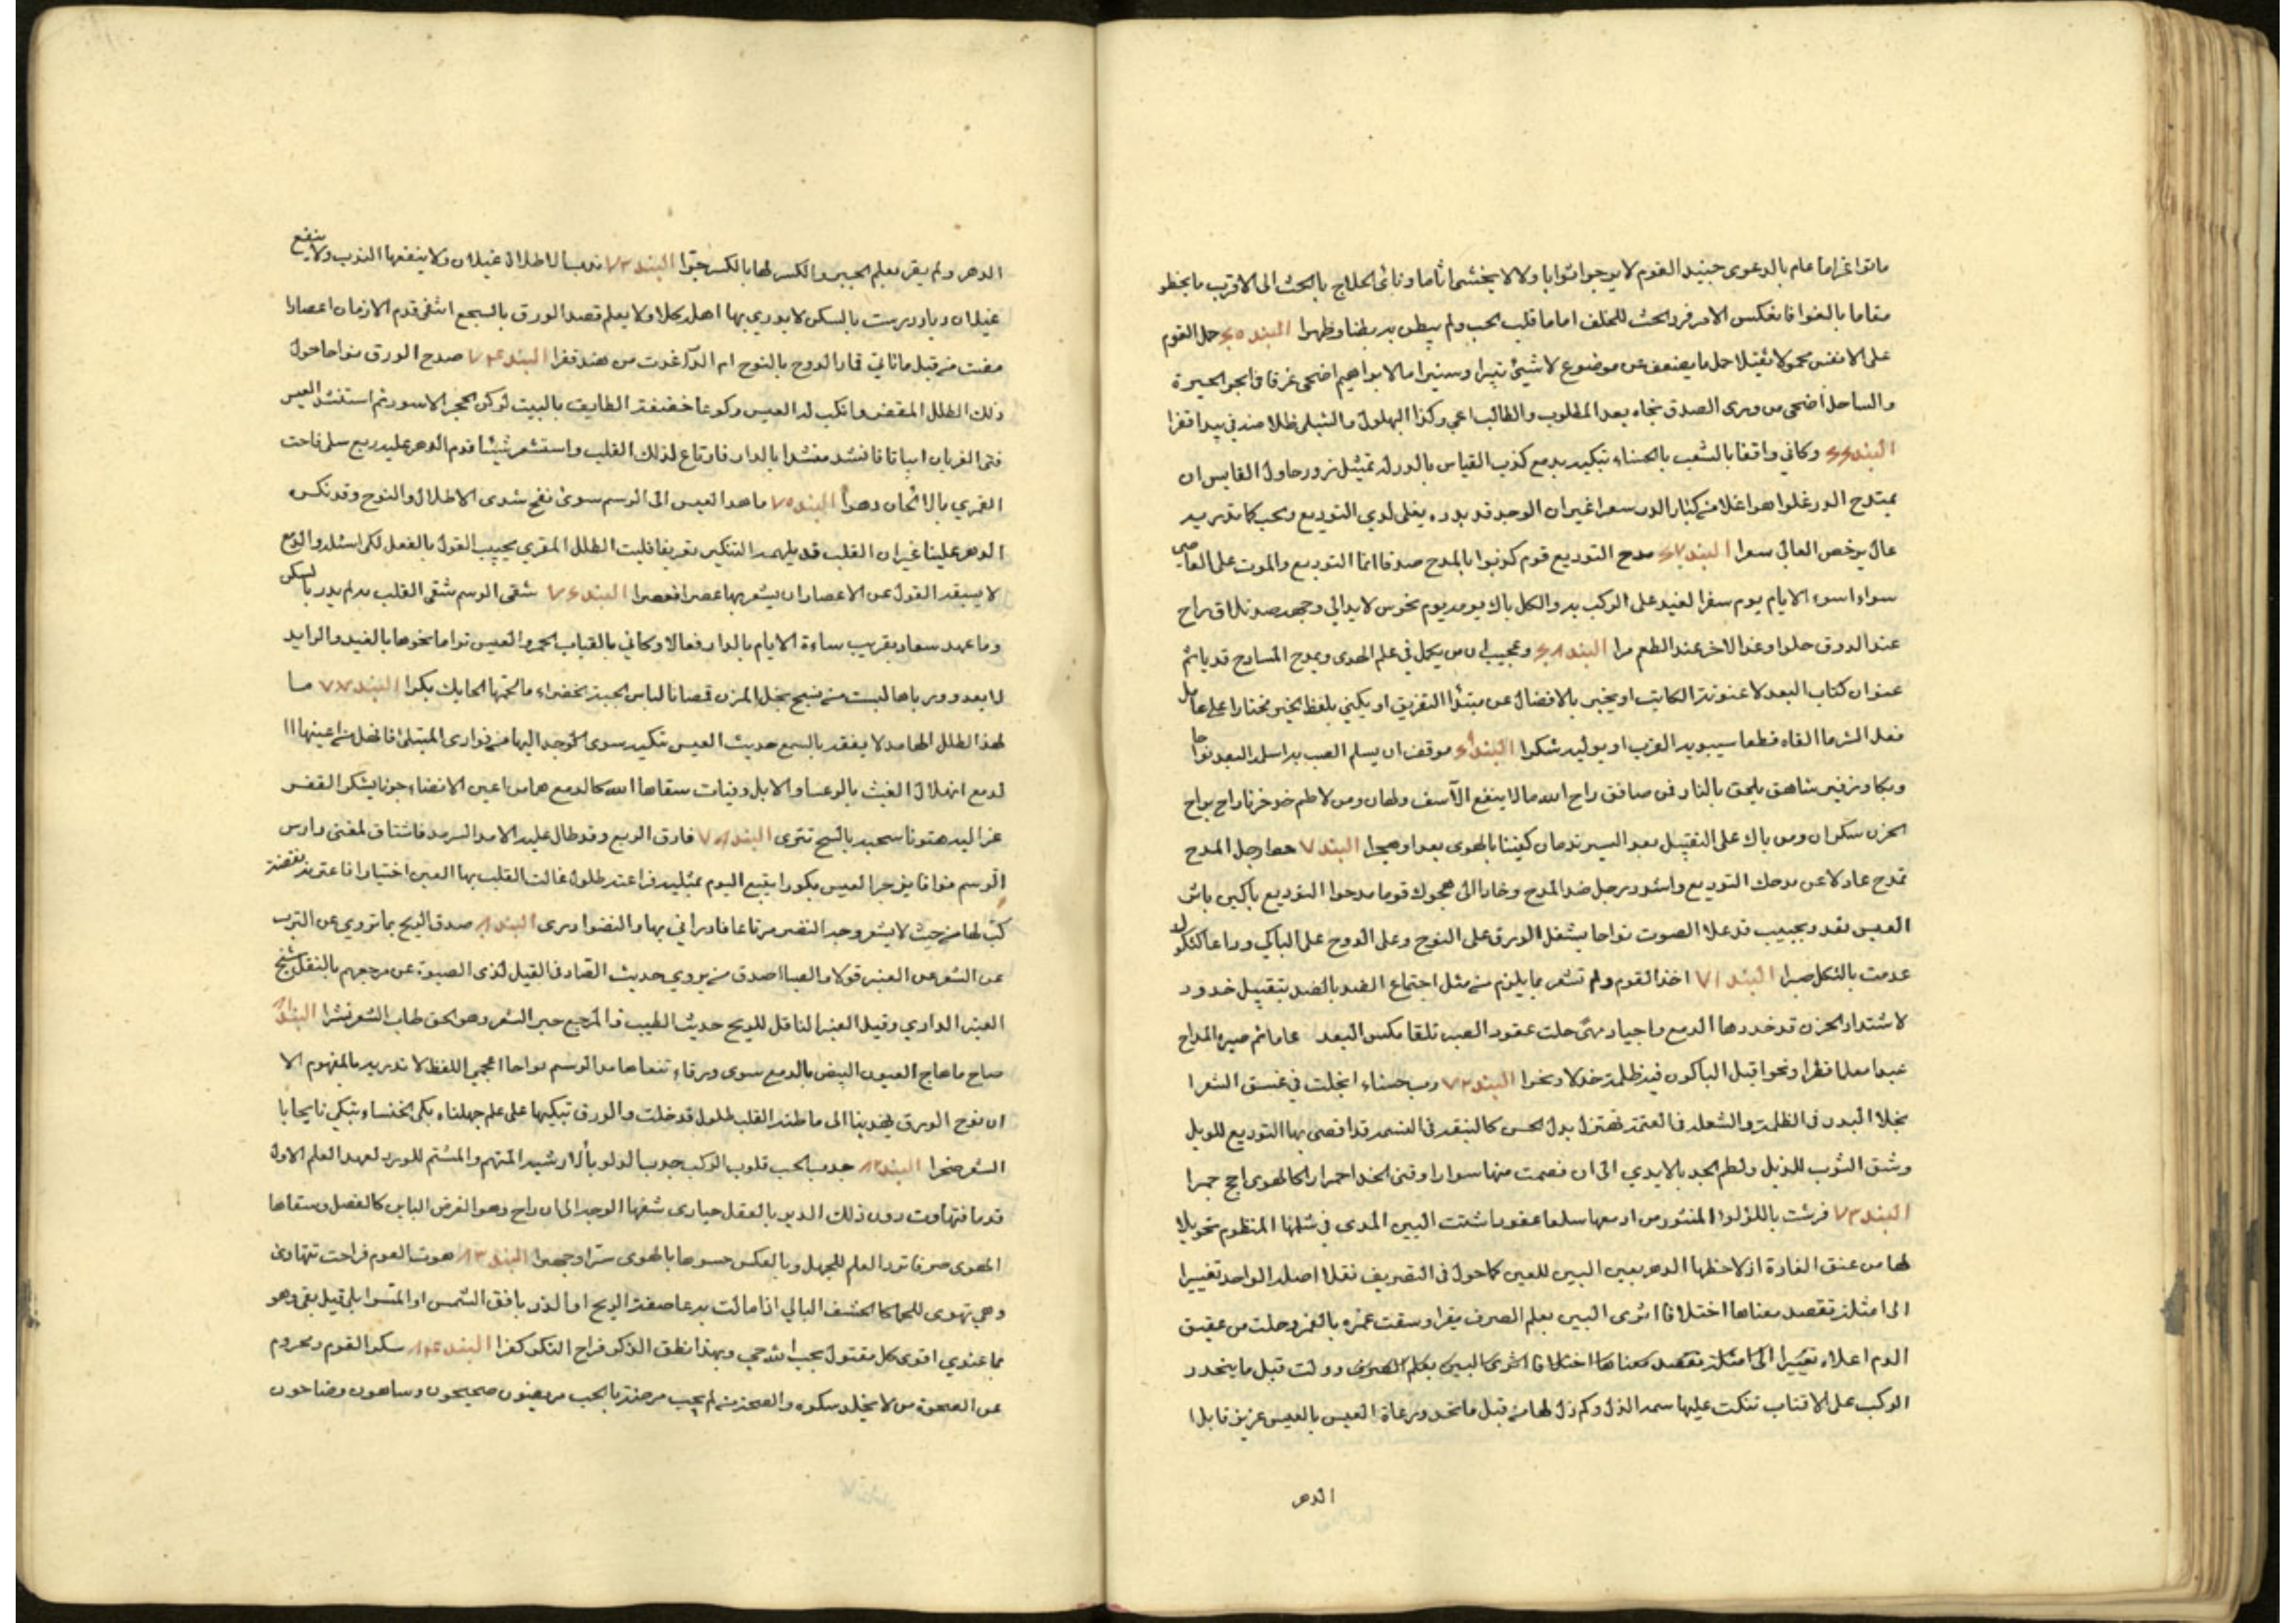 ماتوا غراما عام بالدعوى جنيد القوم لا يرجوا ثوابا ولا لا يخشى اثاما وناى الحلاج بالحث الى الاقرب ما يخطو
مقاما بالغوا فانعكس الامر فرد الحث للخلف اماما قلب الحب ولم يبطن به بطنا وظهرا البند ٦٥ حمل القوم
على الانفس محمولا ثقيلا حمل ما يضعف عن موضوع لا شيئ ثبيرا وسنيرا ما لابراهيم اضحى غرقا في ابحر الحيرة
والساحل اضحى من ورى الصدق نجاه بعد المطلوب والطالب اعمى وكذا البهلول والشبلي ظلا منه في بيدا قفرا
البند ٦٦ وكاني واقفا بالشعب بالحسناء تبكيه بدمع كذب القياس بالدر له تمثيل زور حاول القايس ان
يمتدح الدر غلوا هو اغلا من كبار الدر سعرا غير ان الوجد قد بدره يغلى لدي التوديع والحب كما تدريه
غال يرخص الغالي سعرا البند ٦٧ مدح التوديع قوم كذبوا بالمدح صدقا انما التوديع والموت على العاصي
سواء اسوء الايام يوم سفر الغيد على الركب به والكل باك يومه يوم نحوس لا يدالي وجهه صد تلاق راح
عند الذوق حلوا وغدا الاخر عند الطعم مرا البند ٦٨ وعجيب ان من يكمل في علم الهوى ويمدح المسادح قد ياثم
عنوان كتاب البعد لا عنونه الكاتب او يخبر بالافضال عن مبتدأ التفريق او يكني بلفظ الخير مختارا على عامل
فعل الشر ما القاه قطعا سيبويه القرب او يوليه شكرا البند ٦٩ موقف ان يسلم الصب به اسلمه البعد نواحا
وبكا وزفير شاهق يلحق بالنار فمن صافق راح الله ما لا ينفع الآسف ولهان ومن لاطم خد خرنا راح براح
الحزن سكران ومن باك على التقبيل بعد السير ندمان كفيتنا بالهوى بعدا وهجرا البند ٧٠ رجل المدح
تمدح عاد لا عن مدحك التوديع واسود رجل ضد المدح وخاد الى هجوك قوما مدحوا التوديع باكين باثر
العيس نقد ونحيب قد علا الصوت نواحا يشغل الورق على النوح وعلى الدوح على الباكي وداعا كالثكل
عدمت بالثكل صبرا البند ٧١ اخذ القوم ولم تشعر بما يلزم من مثل اجتماع الضد بالضد بتقبيل خدود
لاشتداد الحزن قد خددها الدمع واجياد مهى حلت عقود الصب تلقا مكس البعد عاما ثم صيره المداح
عبدا معلا فطرا ونحوا قبل الباكون فيه ظلمة خدلا ونحرا البند ٧٢ رب حسناء انجلت في غسق الشعرا
نجلا البدر في الظلمة والشعلة في العتمة تهتز بدل الحسن كالنبقه في النسمة قد اقصى بها التوديع للويل
وشق الثوب للذيل ولطم الخد بالايدي الى ان فصمت منها سوارا وقنى الخد احمرارا كالهوى اجج جمرا
البند ٧٣ فرشت باللؤلؤ المنثور من ادمعها سلعا عقودا شتت البين المدى في شملها المنظوم تحويلا
لها من عنق الغادة اذ لاحظها الدهر بعين البين للعين كما حول في التصريف نقلا اصله الواحد تغييرا
الى امثلة تقصد معناها اختلافا اثرى البين بعلم الصرف يقرا وسقت عمره بالغمز وحلت من عقيق
الدم اعلاه تغييرا الى امثلة تقصد معناها اختلافا اثرى البين بعلم الصرف وولت قبل ما ينحدر
الركب على الاقتاب تنكت عليها سمه الذل وكم ذل لها من قبل ما تخدو رعاة العيس بالعيس عزيز قابلا
الدهر
الدهر ولم يقر بعلم الجبر والكسر لها بالكسر جبرا البند ٧٣ ندب الاطلال غيلان ولا ينفعها الندب ولا ينفع
غيلان وديار درست بالسكن لا يدري بها اهل كلا ولا يعلم قصد الورق بالسجع انثنى قدم الازمان اعصارا
مضت من قبل ما ثاني قمار الدوح بالنوح ام الدار غدت من هند قفرا البند ٧٤ صدح الورق نواحا حول
ذلك الطلل المقفر وانكب له العيس ركوعا خفنفر الطايف بالبيت لركن الحجر الاسود ثم استنشد العيس
فتى الغربان ابياتا فانشد منشدا بالدار فارتاع لذلك القلب واستشعر شيئا قدم الدهر عليه ربع سلى ناحت
القمري بالالحان دهرا البند ٧٥ ما هدا العيس الى الرسم سوى نفح شدى الاطلال والنوح وقد نكره
الدهر علينا غير ان القلب قد يلهمه التنكير تعريفا فليت الطلل المقري يجيب القول بالفعل لكي اسئله والدمع
لا يسبقه القول عن الاعصار ان يشعر بها عصرا فعصرا البند ٧٦ شقى الرسم شقى القلب به لم يدر بالسكن
وما عهد سعاد بقريب ساءة الايام بالدار فعالا وكاني بالقباب الحمر والعيس تراما نحوها بالغيد والرايد
لا يعدو ورباها لبست من نسج نجل المزن قمصانا لباس الجبة الخضراء ما لحمتها الحايك بكرا البند ٧٧ ما
لهذا الطلل الهامد لا يفقه بالسمع حديث العيس تبكيه سوى الوجد اليها من فوادى المبتلى افانضل من اعينها
لدمع انهلال الغيث بالوعسا والابل وفيات سقاها الله كالدمع هما من اعين الانضاء جونا يشكر القفر
عزاليه هتونا سحبه بالسح تترى البند ٧٨ فارق الربع وقد طال عليه الامد السرمد فاشتاق لمغنى دارس
الرسم نوافا يزجر العيس بكورا يتبع اليوم بمثليه فراعته طلول غالت القلب بها العين اختيارا فاعترته نفضة
كئب لها من حيث لا يشعر وجد النضر مرتاعا فادراني بها والنضو ادرى البند ٨٠ صدق الريح بما تروي عن الترب
عن الشعر عن العنبر قولا والصبا اصدق من يروي حديث الضاد في القيل لذى الصبوة عن مرجعهم بالنقل شيخ
العنبر الداري وقيل العنبر الناقل للريح حديث الطيب والمرجع حبر الشعر وهو الحق طاب الشعر نشرا البند ٨١
صاح ما هاج العيون البيض بالدمع سوى ورقاء تنعاها مدا الرسم نواحا اعجمي اللفظ لا تدريه بالمفهوم الا
ان نوح الورق يهدينا الى ما ظنه القلب طلول قد خلت والورق تبكيها على علم جهلناه بكى الخنساء تبكي نايحا با
الشعر صخرا البند ٨٢ جذب الحب قلوب الركب جذب الدلو بالارشية المتهم والمشتم للورد لعهد العلم الاول
قدما فتهاوت دون ذلك الدير بالعقل حيارى شفها الوجد الى ان راح وهو الغرض الباين كالفصل وسقاها
الهوى صرفا ترد العلم للجهل وبالعكس حسوها بالهوى سرا وجهرا البند ٨٣ هوت القوم فراحت تتهادى
وهي تهوى للحما كالحشف البالي اذا مالت به عاصفة الريح او الذر بافق الشمس او المشو ابلى قيل بقى وهو
بما عندي اقوى كل مقتول بحب الله حي وبهذا نطق الذكر فراح النكر كفرا البند ٨٤ سكر القوم ومحروم
عن الصحوة من لا يخله سكره والصحو من لم يجب مرضة بالحب مريضون صحيحون وساهون وضاحون